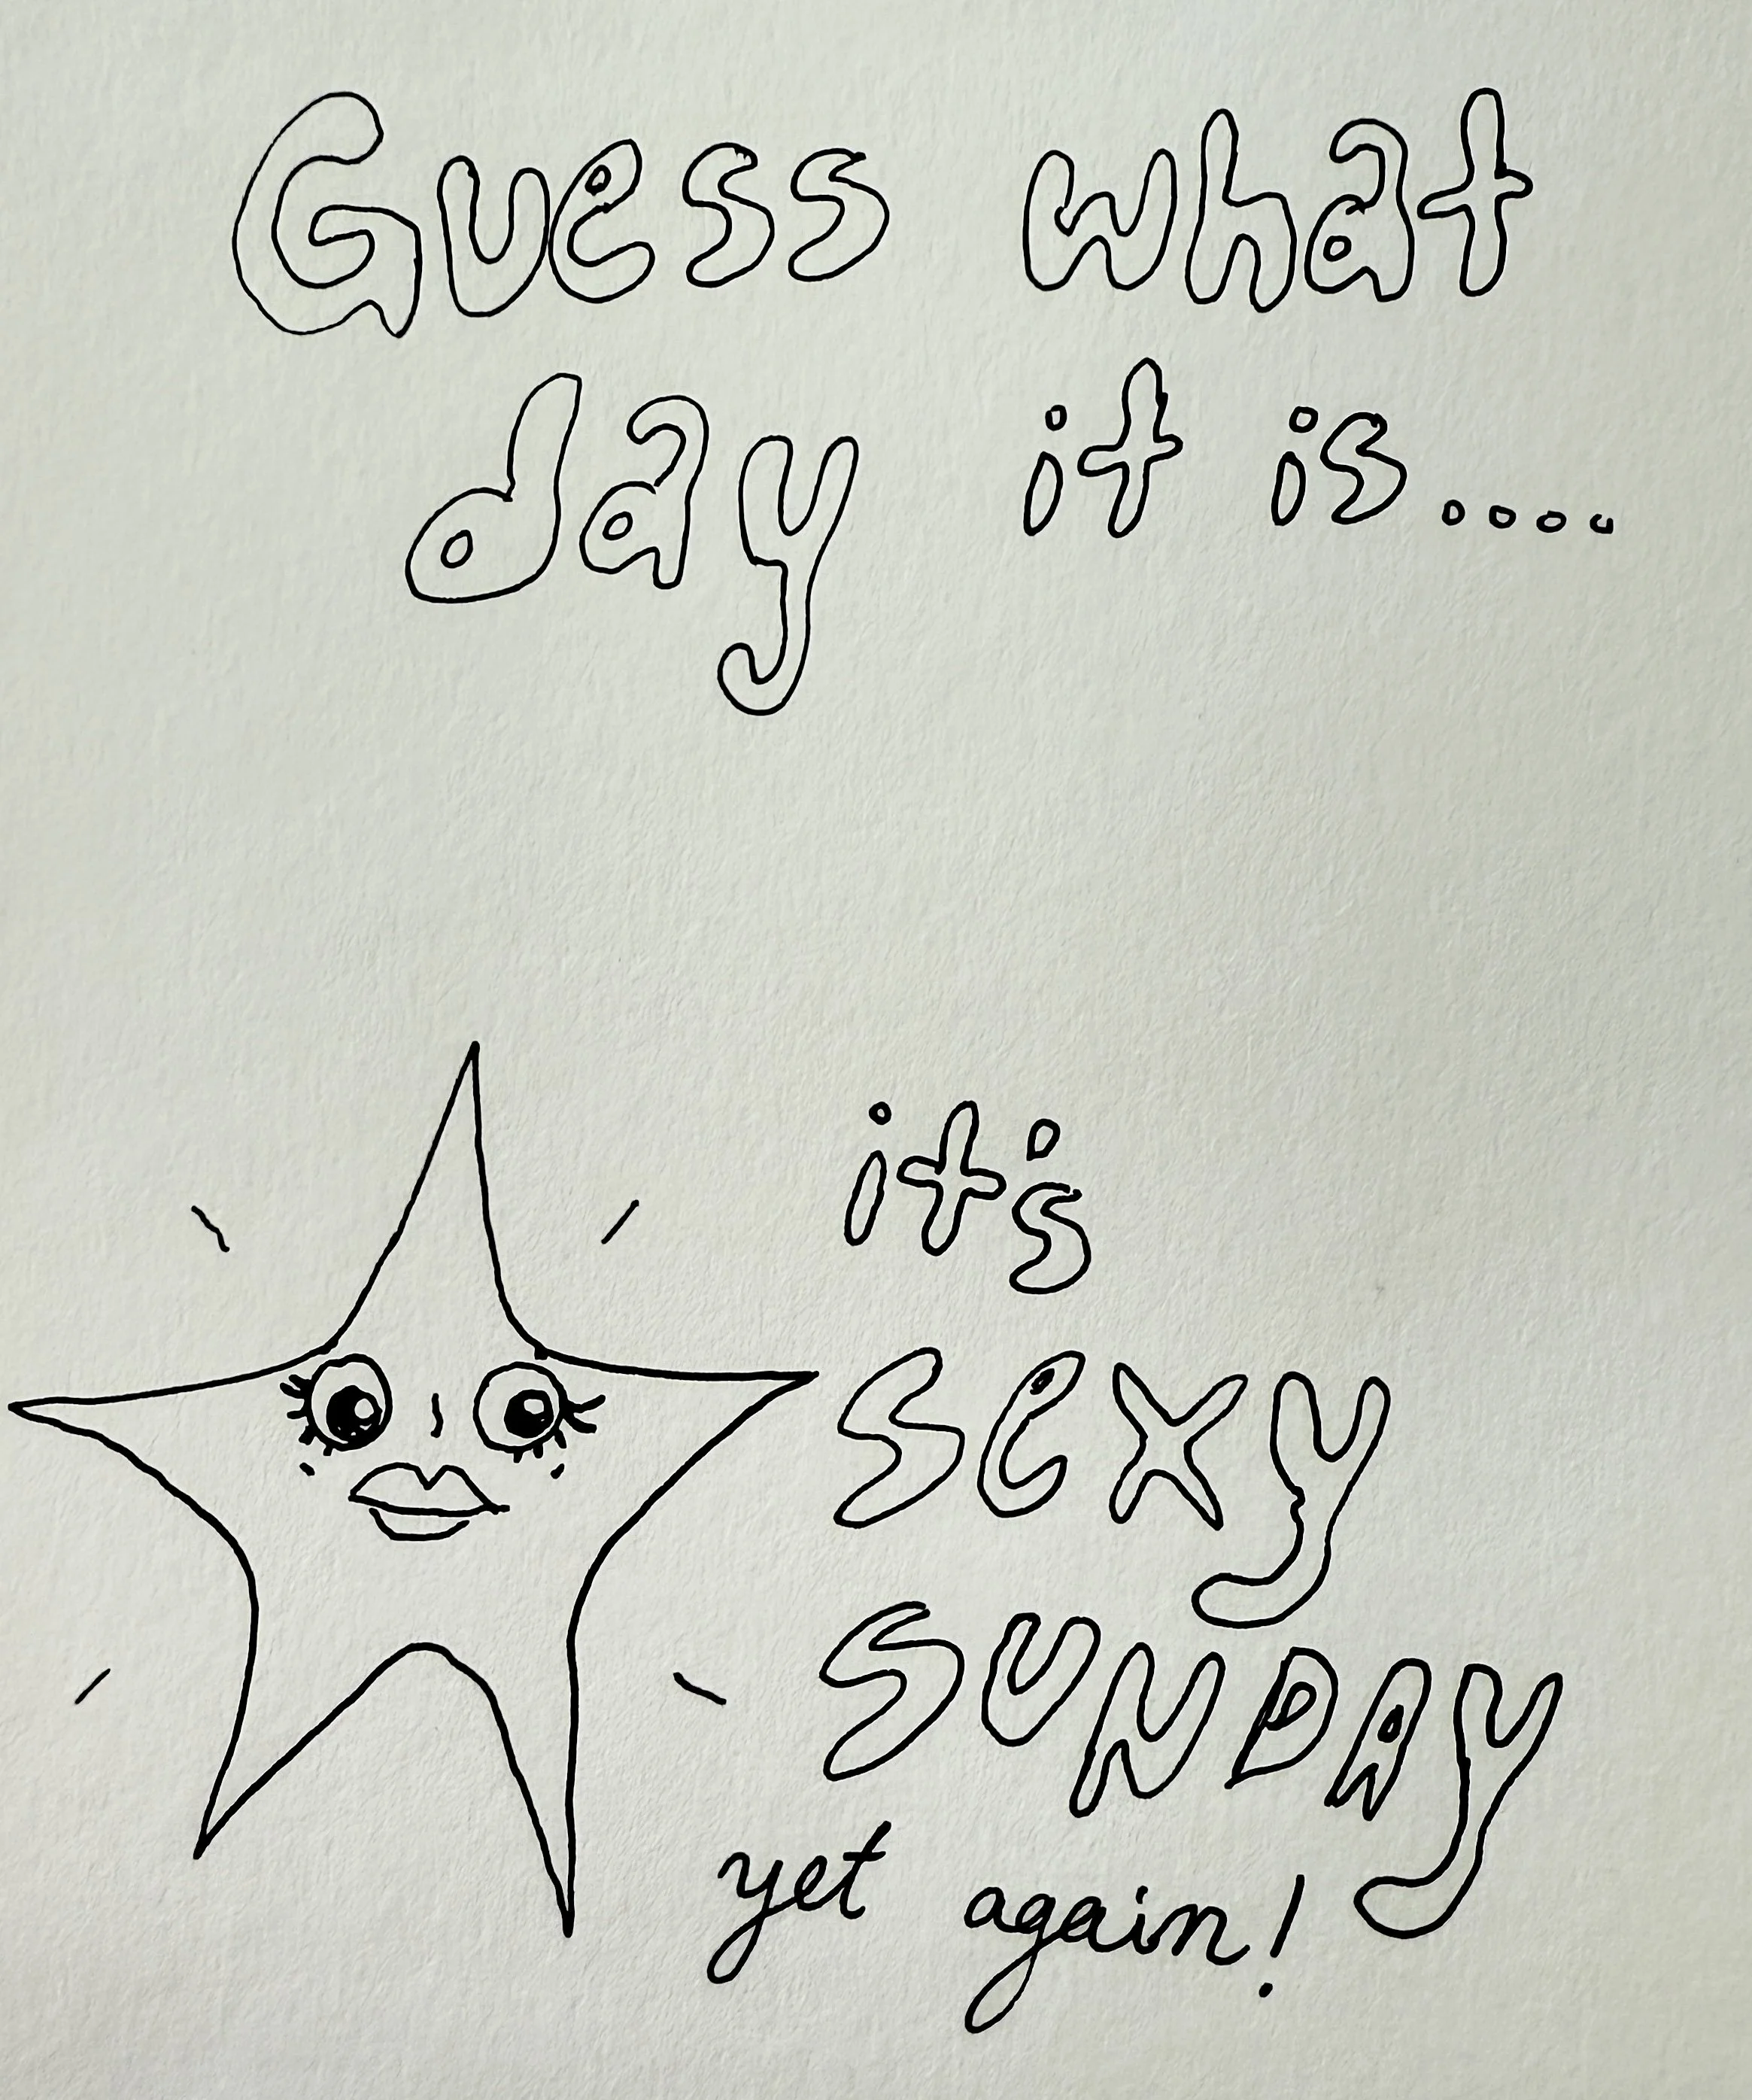 Guess what
day it is....
it's
sexy
SUNDAy
yet again!